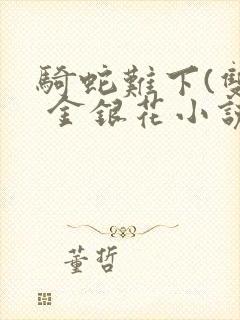 騎蛇難下(雙
金銀花小說
董哲